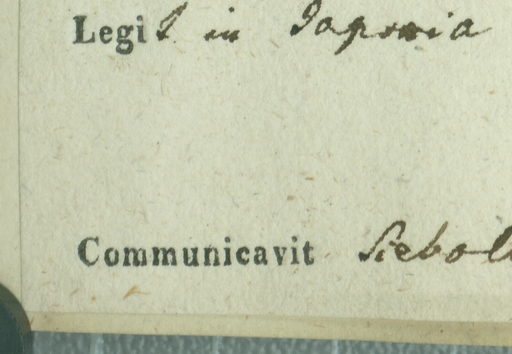 Legit in Japonia
Communicavit Siebol